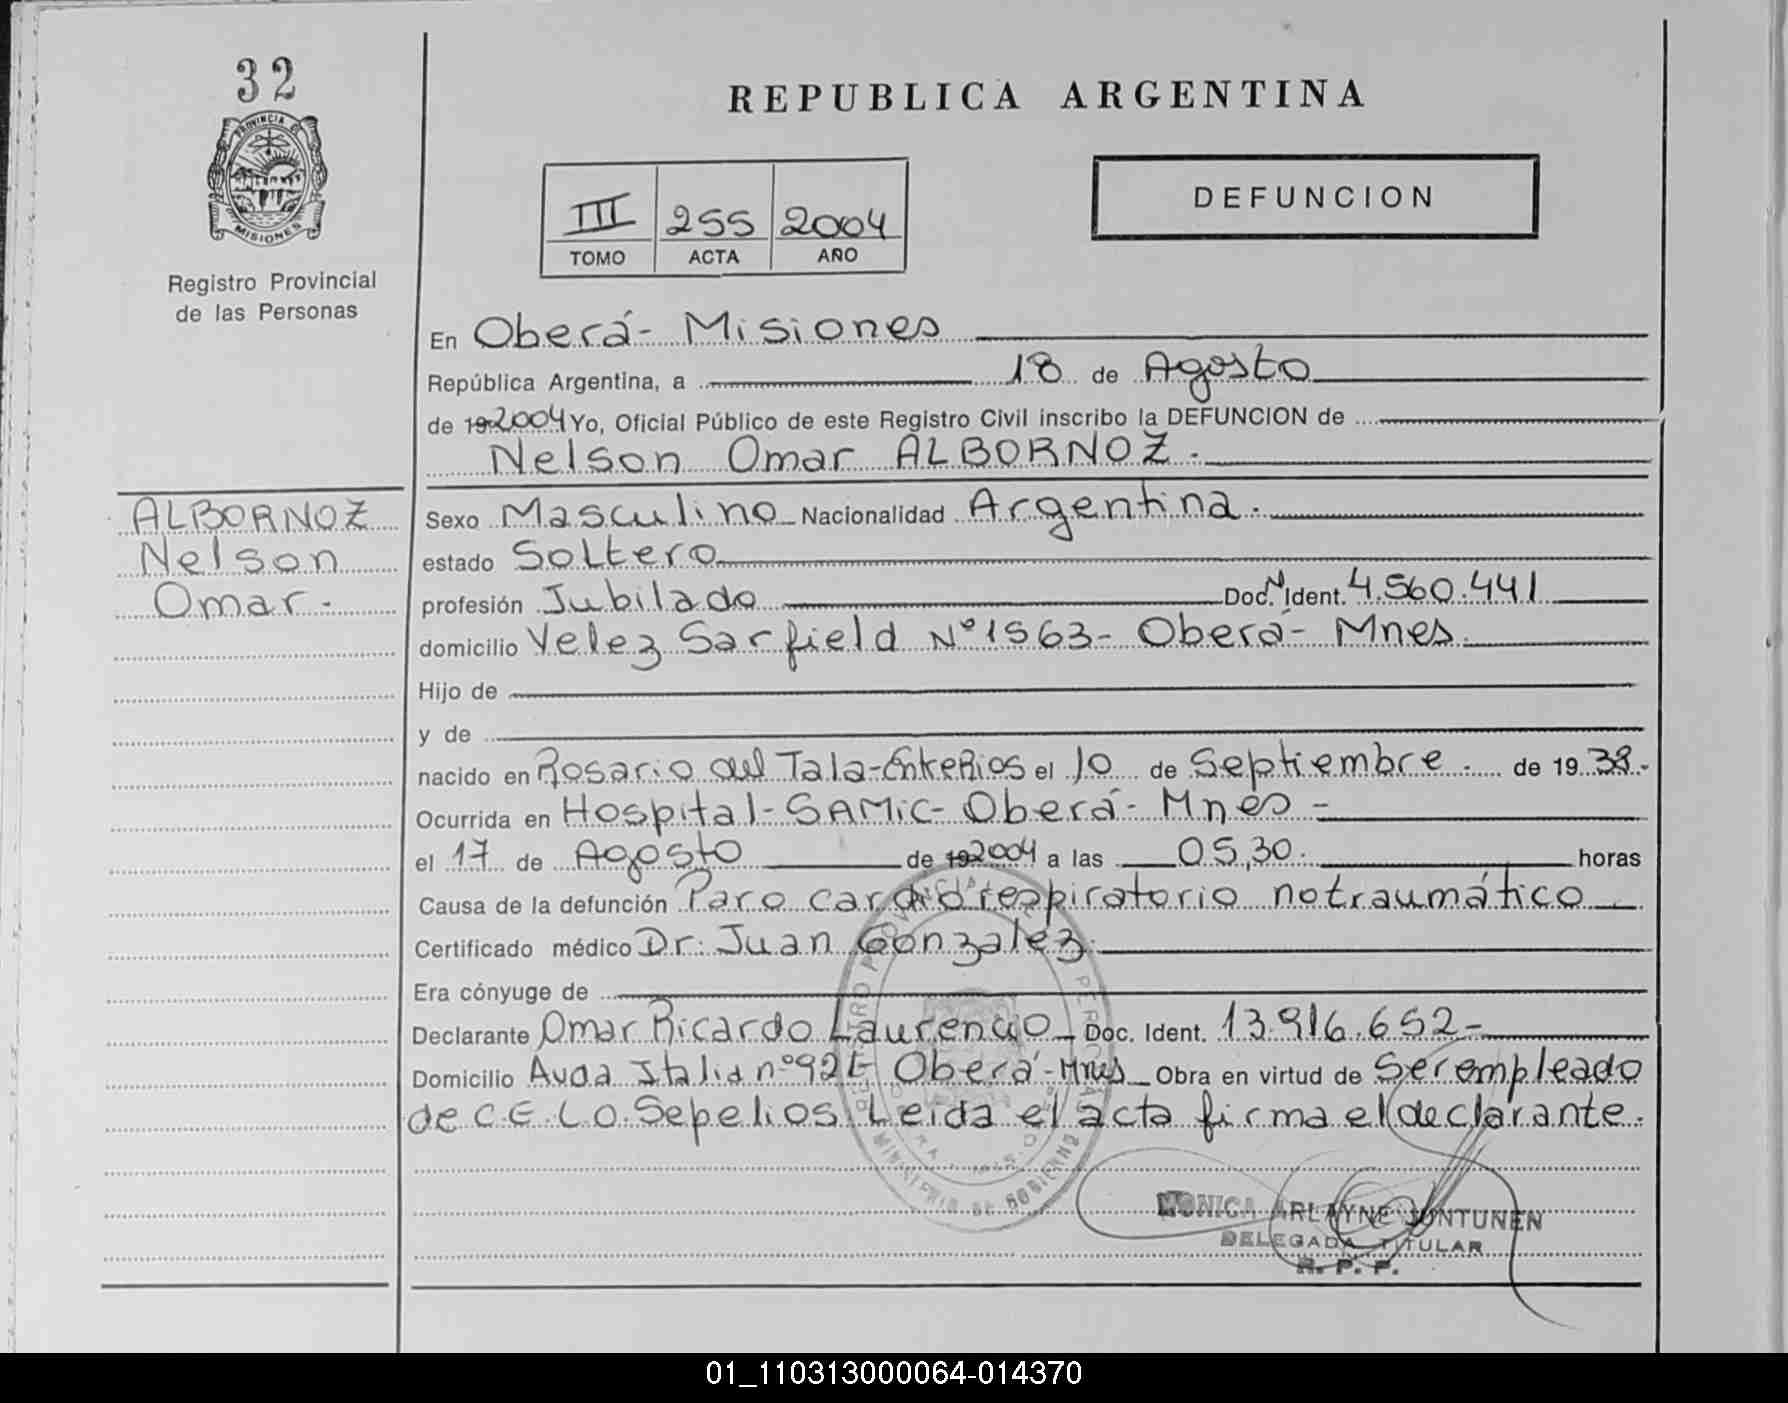 32
PROVINCIA DE
MISIONES
Registro Provincial
de las Personas
REPUBLICA ARGENTINA
III 255 2004
TOMO ACTA AÑO
DEFUNCION
En Oberá- Misiones
República Argentina, a 18 de Agosto
de 19 2004 Yo, Oficial Público de este Registro Civil inscribo la DEFUNCION de
Nelson Omar ALBORNOZ.
ALBORNOZ
Nelson
Omar.-
Sexo Masculino Nacionalidad Argentina.
estado Soltero
profesión Jubilado Doc. N Ident. 4.560.441
domicilio Velez Sarfield Nº 1563- Oberá- Mnes.
Hijo de
y de
nacido en Rosario del Tala-Entre Rios el 10 de Septiembre . de 19 38.-
Ocurrida en Hospital-SAMIC-Oberá- Mnes -
el 17 de Agosto de 19 2004 a las 05,30. horas
Causa de la defunción Paro cardiorespiratorio notraumático
Certificado médico Dr: Juan Gonzalez.
Era cónyuge de
Declarante Omar Ricardo Laurencio Doc. Ident. 13.916.652-
Domicilio Avda Italia nº 92 Oberá-Mnes Obra en virtud de Ser empleado
de C.E.L.O. Sepelios. Leida el acta firma el declarante.
MINISTERIO DE GOBIERNO
MONICA ARLAYNE JUNTUNEN
DELEGADA TITULAR
R. P. P.
01_110313000064-014370